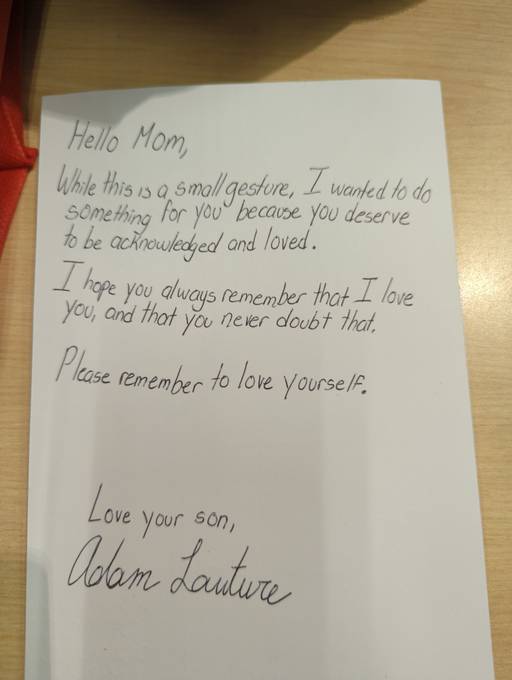 Hello Mom,
While this is a small gesture, I wanted to do
something for you because you deserve
to be acknowledged and loved.
I hope you always remember that I love
you, and that you never doubt that.
Please remember to love yourself.
Love your son,
Adam Lauture